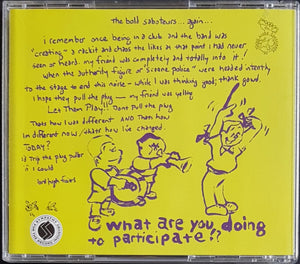 The bold saboteurs... again...
i remember once being in a club and the band was
"creating" a rackit and chaos the likes at that point i had never
seen or heard. my friend was completely and totally into it!
when the authority figure or "scene police" were headed intently
to the stage to end this noise - while i was thinking good; thank god.
i hope they pull the plug - my friend was yelling
Let Them Play!!! Dont pull the plug
Thats how i was different AND Than how
i'm different now/whats how i've changed.
TODAY?
id Trip the plug puller
if i could
what are you doing
to participate!?